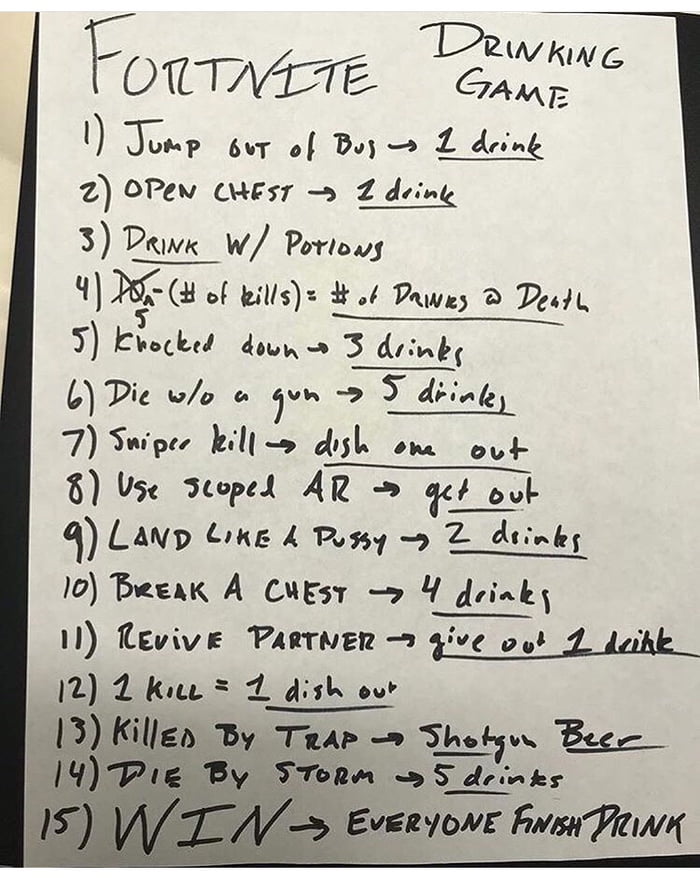 FORTNITE DRINKING GAME
1) JUMP OUT of BUS → 1 drink
2) OPEN CHEST → 1 drink
3) DRINK W/ POTIONS
4) 5 - (# of kills) = # of DRINKS @ Death
5) Knocked down → 3 drinks
6) Die w/o a gun → 5 drinks
7) Sniper kill → dish one out
8) Use scoped AR → get out
9) LAND LIKE A PUSSY → 2 drinks
10) BREAK A CHEST → 4 drinks
11) REVIVE PARTNER → give out 1 drink
12) 1 KILL = 1 dish out
13) KillED By TRAP → Shotgun Beer
14) DIE By STORM → 5 drinks
15) WIN → EVERYONE FINISH DRINK